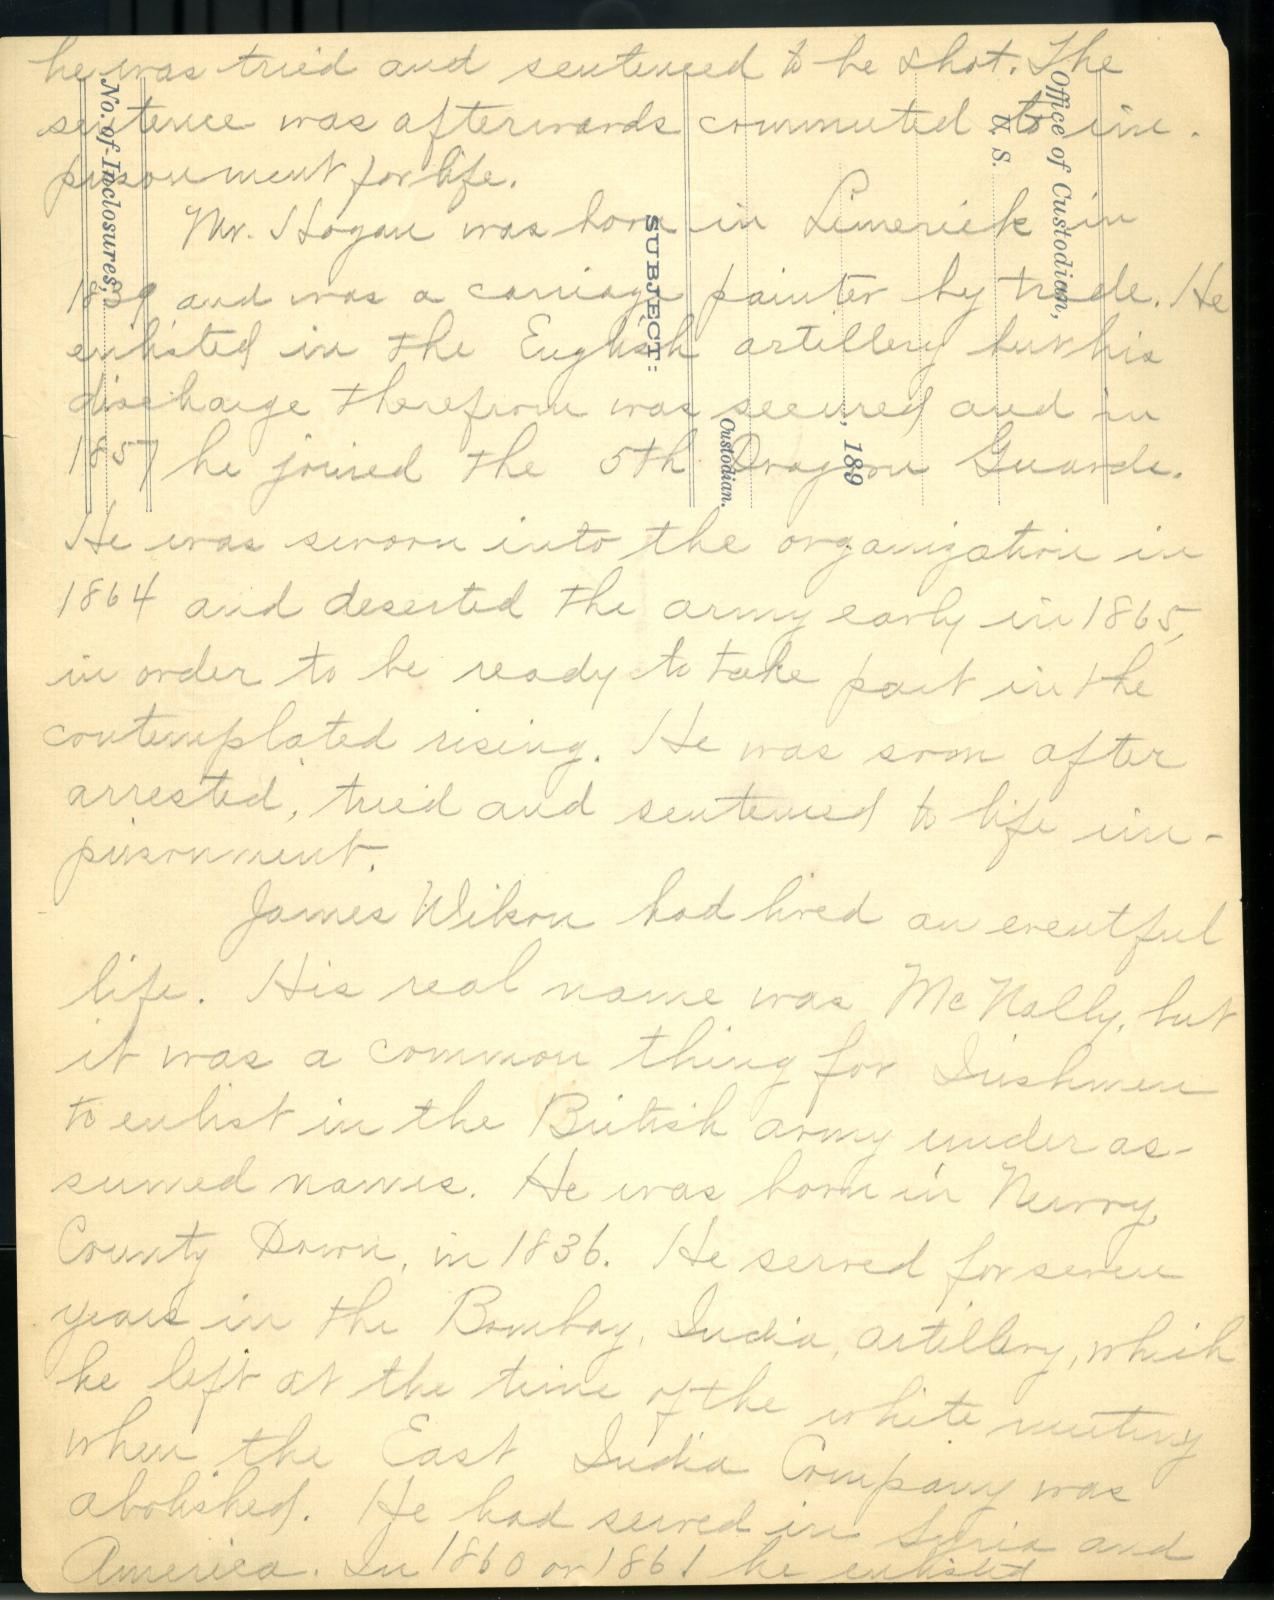 he was tried and sentenced to be shot. The
sentence was afterwards commuted to im-
prisonment for life.
Mr. Hogan was born in Limerick in
1839 and was a carriage painter by trade. He
enlisted in the English artillery but his
discharge therefrom was secured and in
1857 he joined the 5th Dragoon Guards.
He was sworn into the organization in
1864 and deserted the army early in 1865,
in order to be ready to take part in the
contemplated rising. He was soon after
arrested, tried and sentenced to life im-
prisonment.
James Wilson had lived an eventful
life. His real name was McNally, but
it was a common thing for Irishmen
to enlist in the British army under as-
sumed names. He was born in Newry,
County Down, in 1836. He served for seven
years in the Bombay, India, artillery, which
he left at the time of the white mutiny
when the East India Company was
abolished. He had served in Syria and
America. In 1860 or 1861 he enlisted
Office of Custodian,
U. S.
, 189
Custodian.
SUBJECT:
No. of Inclosures,